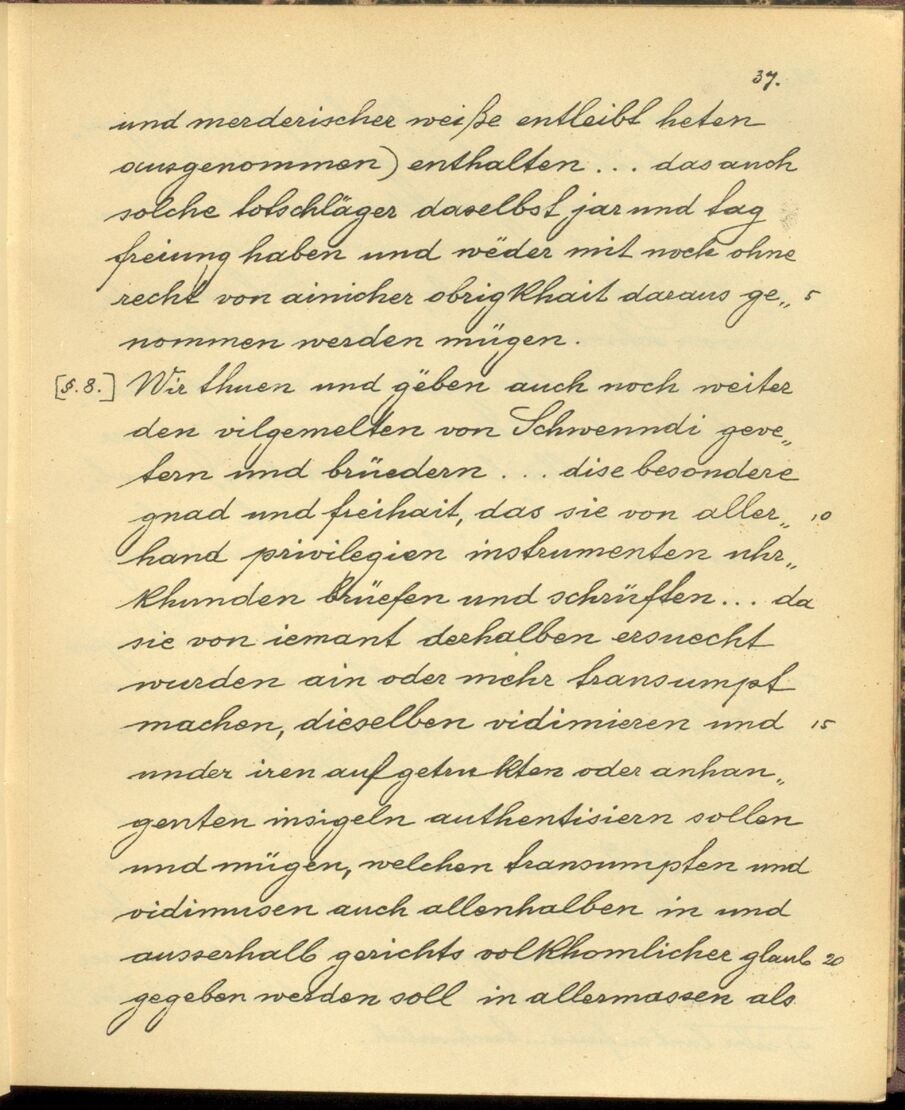 37.
und merderischer weiße entleibt heten
ausgenommen) enthalten ... das auch
solche totschläger daselbst jar und tag
freiung haben und wëder mit noch ohne
recht von ainicher obrigkhait daraus ge„ 5
nommen werden mügen.
[§. 8.] Wir thuen und gëben auch noch weiter
den vilgemelten von Schwenndi geve„
tern und brüedern ... dise besondere
gnad und freihait, das sie von aller„ 10
hand privilegien instrumenten uhr„
khunden brüefen und schrüften ... da
sie von iemant derhalben ersuecht
wurden ain oder mehr transumpt
machen, dieselben vidimieren und 15
under iren aufgetrukten oder anhan„
genten insigeln authentisiern sollen
und mügen, welchen transumpten und
vidimusen auch allenhalben in und
ausserhalb gerichts volkhomlicher glaub 20
gegeben werden soll in allermassen als